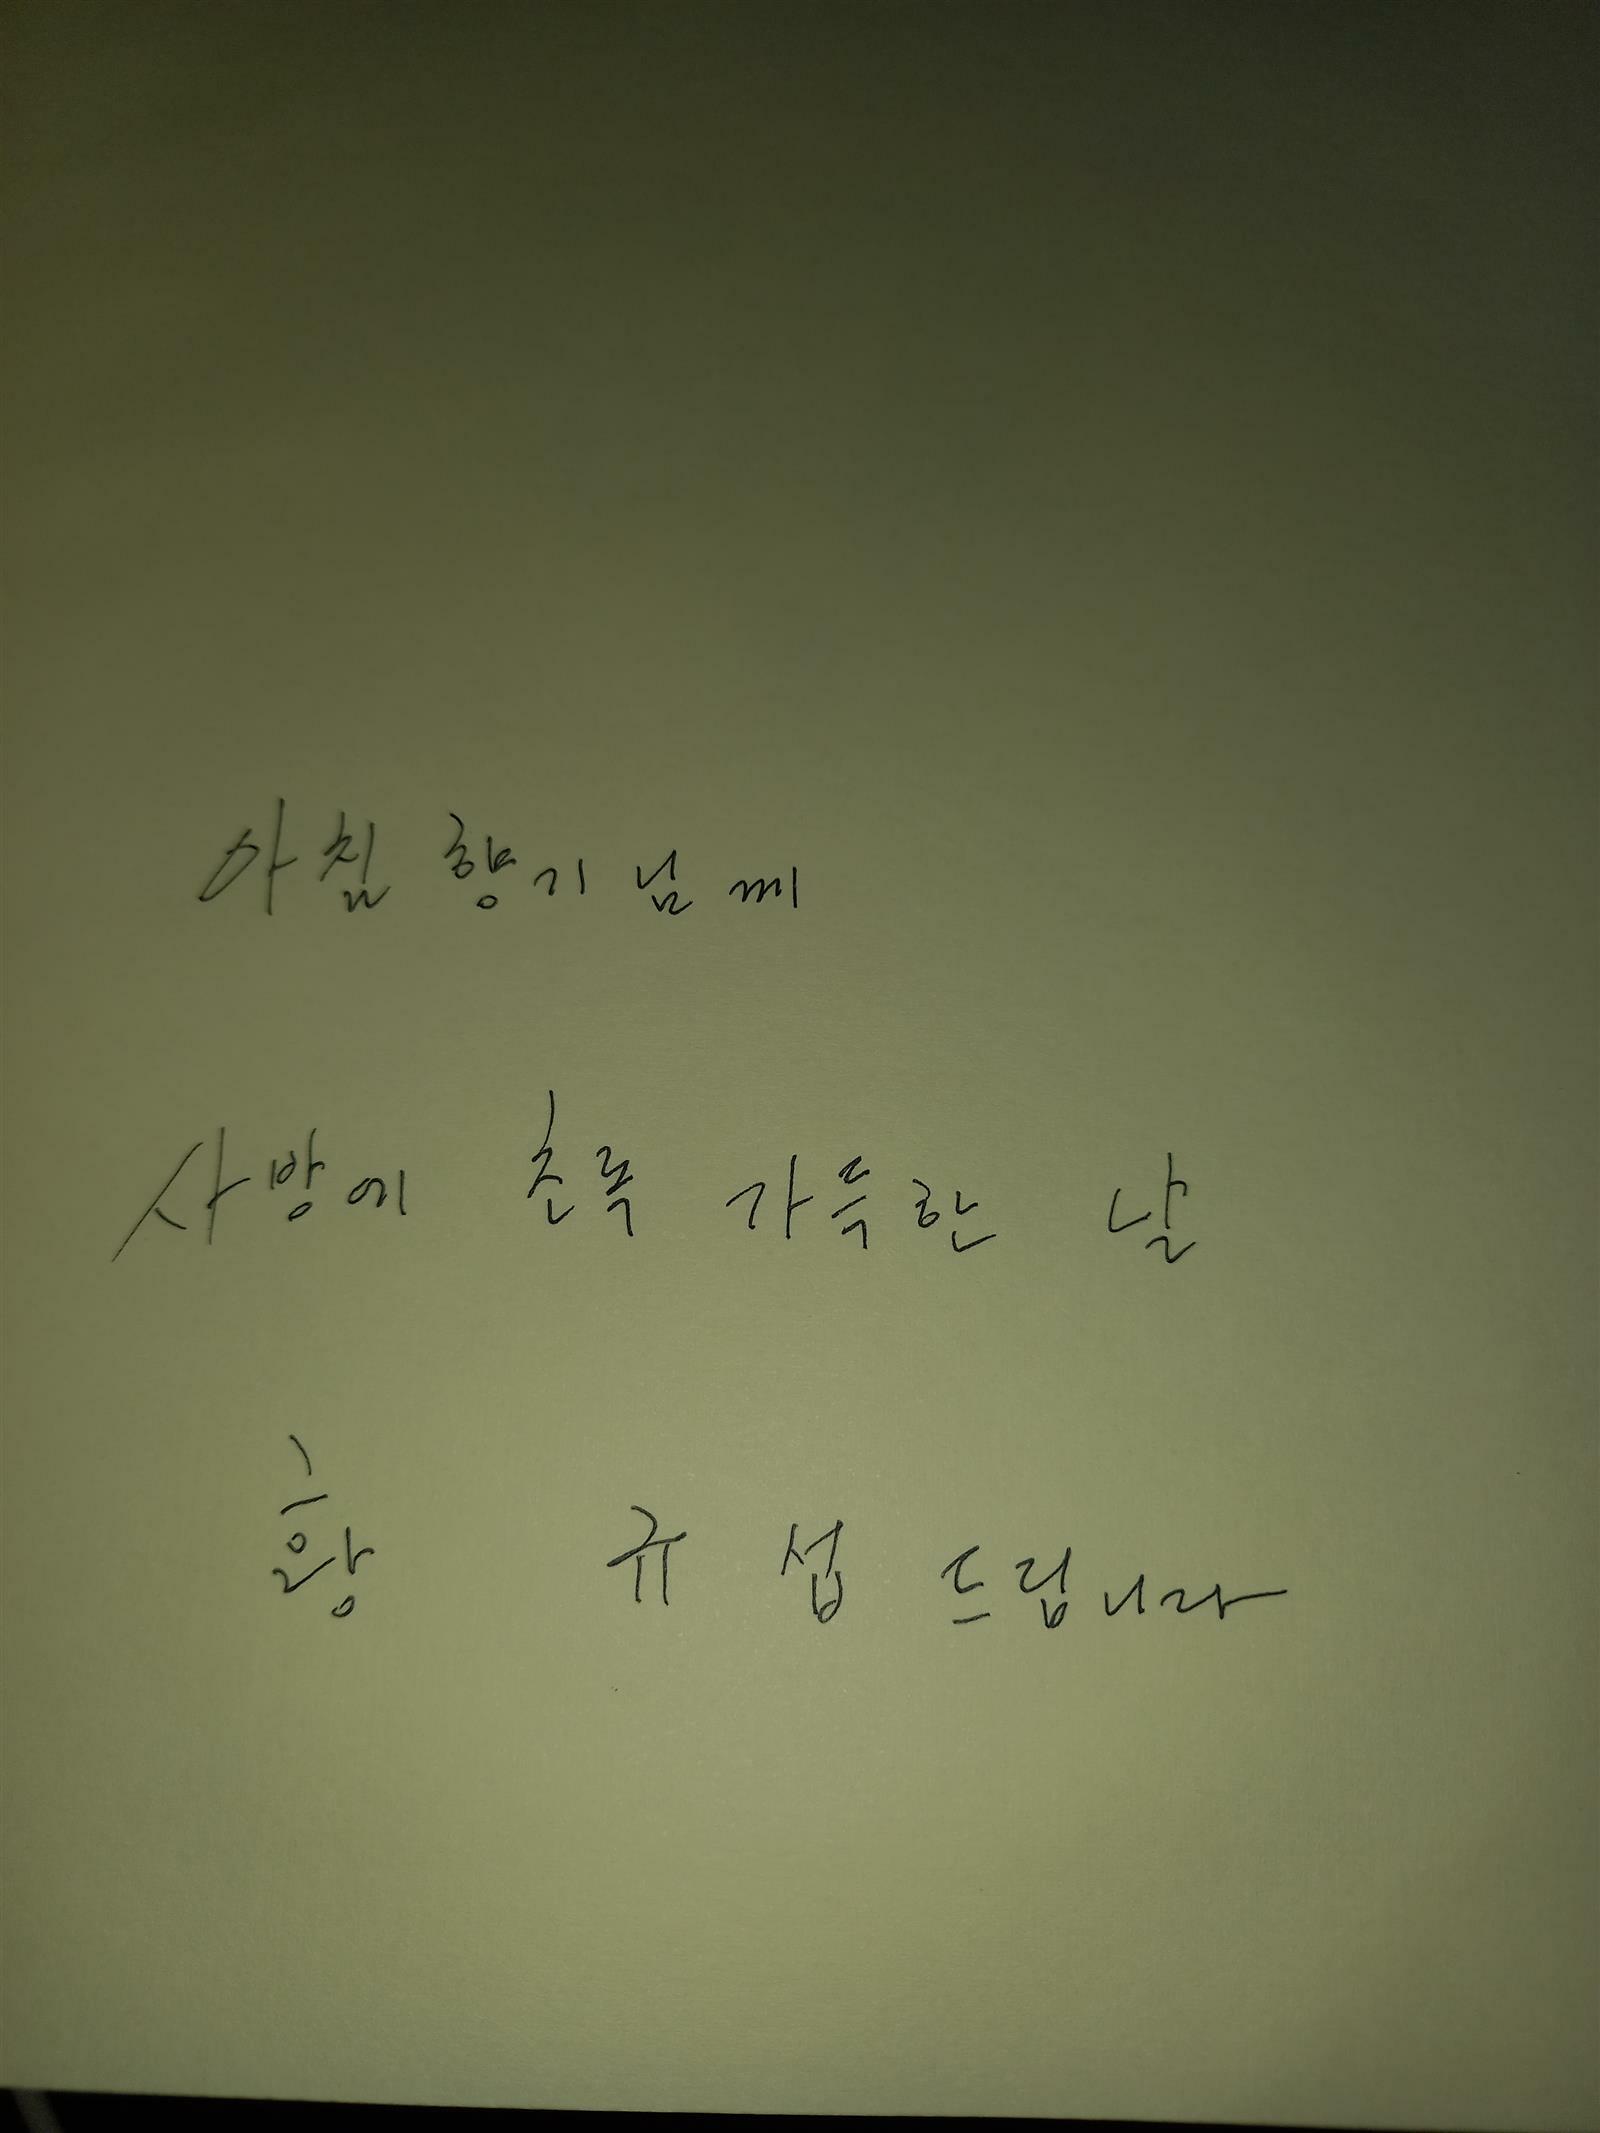 아침 향기 님께
사방에 초록 가득한 날
황 규 섭 드립니다